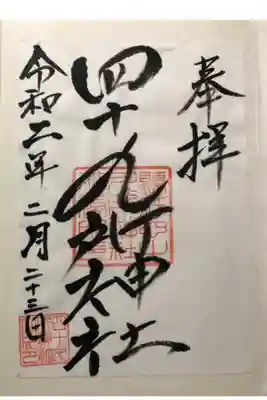 奉拝
四十九所神社
令和二年 二月二十三日